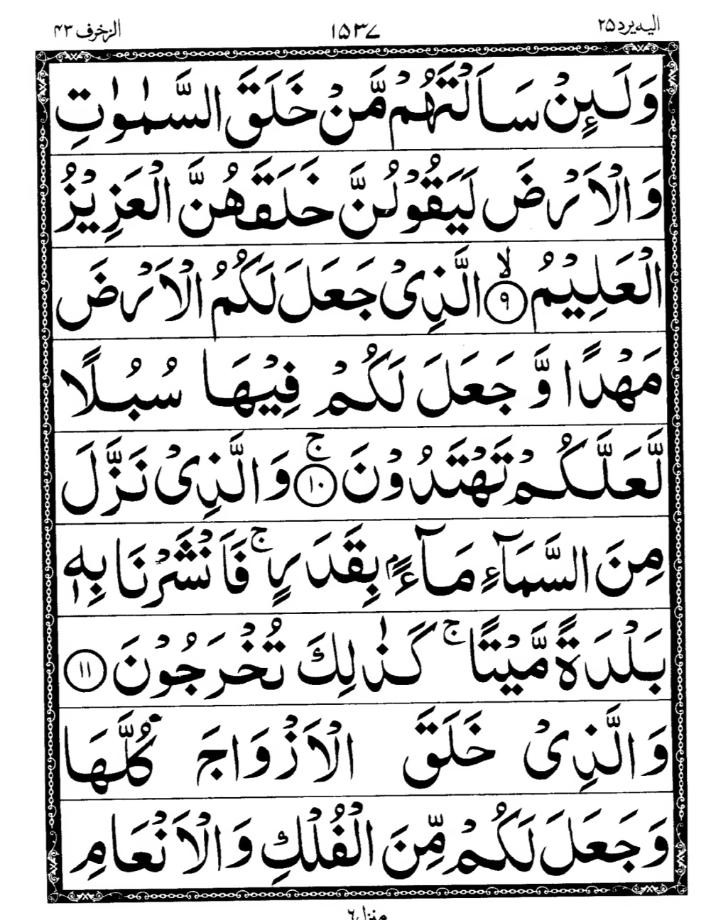 اليه يرد ٢٥ ١٥٣٧ الزخرف ٤٣
وَلَئِنْ سَاَلْتَهُمْ مَّنْ خَلَقَ السَّمٰوٰتِ
وَالْاَرْضَ لَيَقُوْلُنَّ خَلَقَهُنَّ الْعَزِيْزُ
الْعَلِيْمُ ۙ‏﴿۹﴾ الَّذِىْ جَعَلَ لَكُمُ الْاَرْضَ
مَهْدًا وَّ جَعَلَ لَكُمْ فِيْهَا سُبُلًا
لَّعَلَّكُمْ تَهْتَدُوْنَ ۚ‏﴿۱۰﴾ وَالَّذِىْ نَزَّلَ
مِنَ السَّمَآءِ مَآءًۢ بِقَدَرٍ ۚ فَاَنْشَرْنَا بِهٖ
بَلْدَةً مَّيْتًا ۚ كَذٰلِكَ تُخْرَجُوْنَ ﴿۱۱﴾
وَالَّذِىْ خَلَقَ الْاَزْوَاجَ كُلَّهَا
وَجَعَلَ لَكُمْ مِّنَ الْفُلْكِ وَالْاَنْعَامِ
منزل ٦